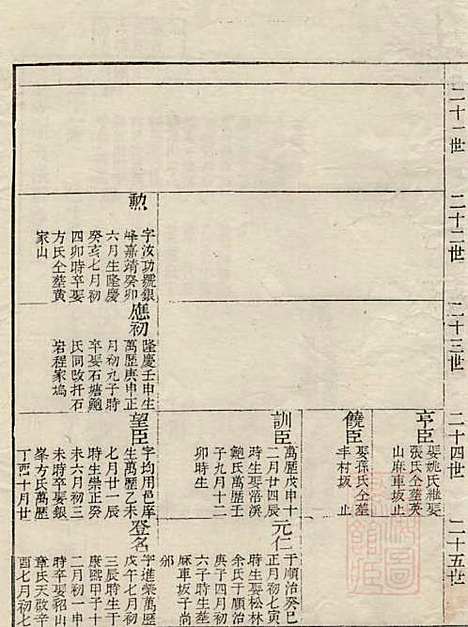 二十一世
二十二世
二十三世
二十四世
二十五世
勲
字汝功號銀
峰嘉靖癸卯
六月生隆慶
癸亥七月初
四卯時卒娶
方氏仝塟黄
家山
應初
隆慶壬申生
萬歷庚申正
月初九子時
卒娶石塘鮑
氏同改扦石
岩程家塢
亨臣
娶姚氏繼娶
張氏仝塟英
山麻車坂止
饒臣
娶孫氏仝塟
丰村坂止
訓臣
萬歷戊申十
二月廿四辰
時生娶浯溪
鮑氏萬歷壬
子九月十二
卯時生
望臣
字均用邑庠
生萬歷乙未
七月廿一辰
時生崇正癸
未六月初三
未時卒娶銀
峯方氏萬歷
丁酉十月廿
元仁
于順治癸巳
正月初七寅
時生娶松林
余氏于順治
庚子四月初
六子時生塟
麻車坂子尚
邠
登名
字進榮萬歷
戊午七月初
三辰時生于
康熙甲子十
二月初一申
時卒娶稻山
章氏天啟辛
酉七月初七